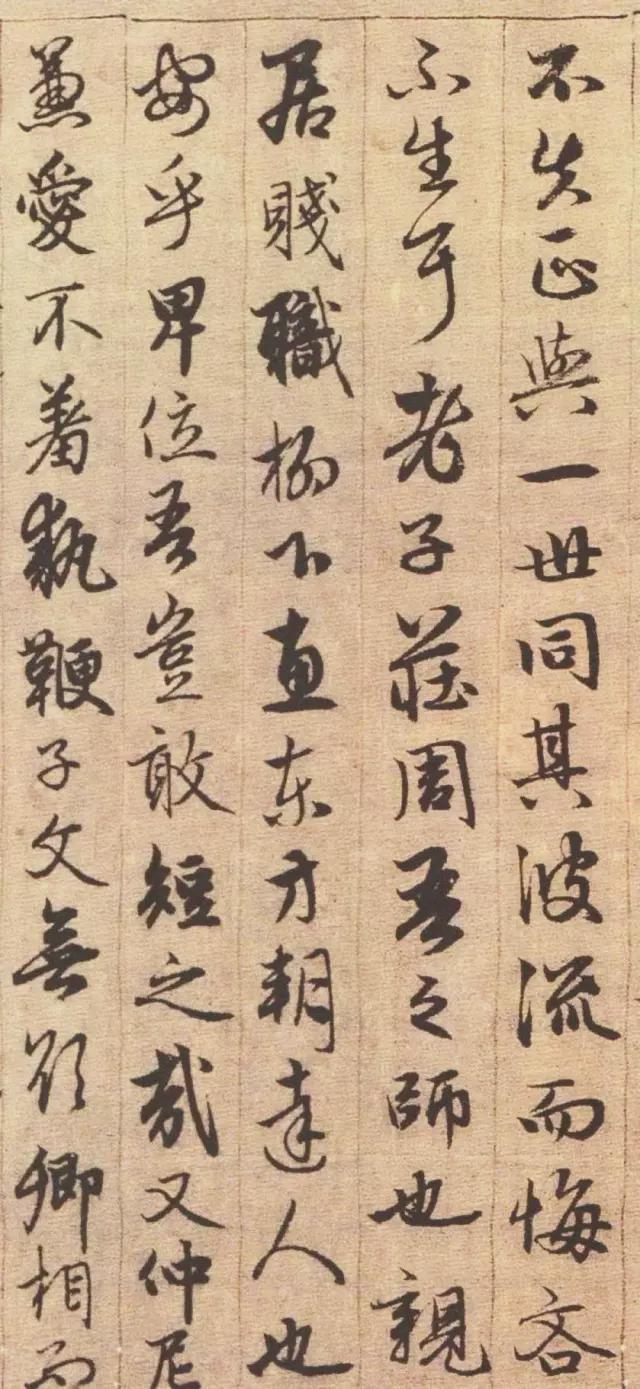 不失正與一世同其波流而悔吝
不生耳老子莊周吾之師也親
居賤職柳下直東方朔達人也
安乎卑位吾豈敢短之哉又仲尼
兼愛不著執鞭子文無欲卿相而